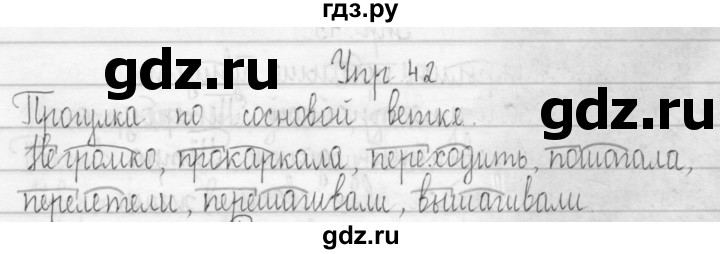 гдз.ру
Упр 42
Прогулка по сосновой ветке.
Негромко, прокаркала, переходить, пошагала,
перелетели, перешагивали, вышагивали
gdz.ru
gdz.ru
gdz.ru